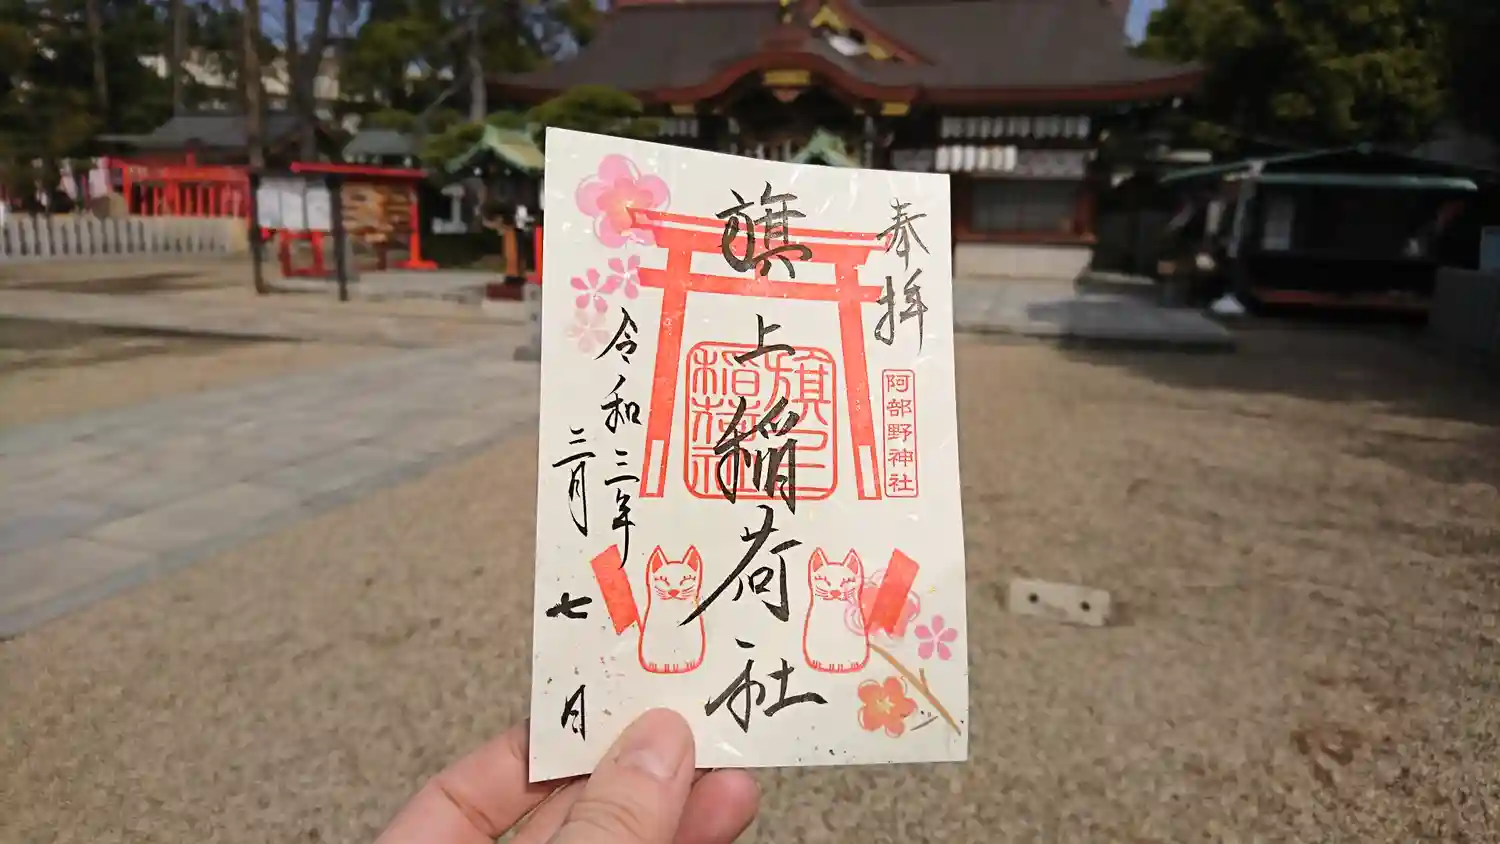 奉拝
阿部野神社
旗上稲荷社
旗上
稲荷社
令和三年
三月
七
日